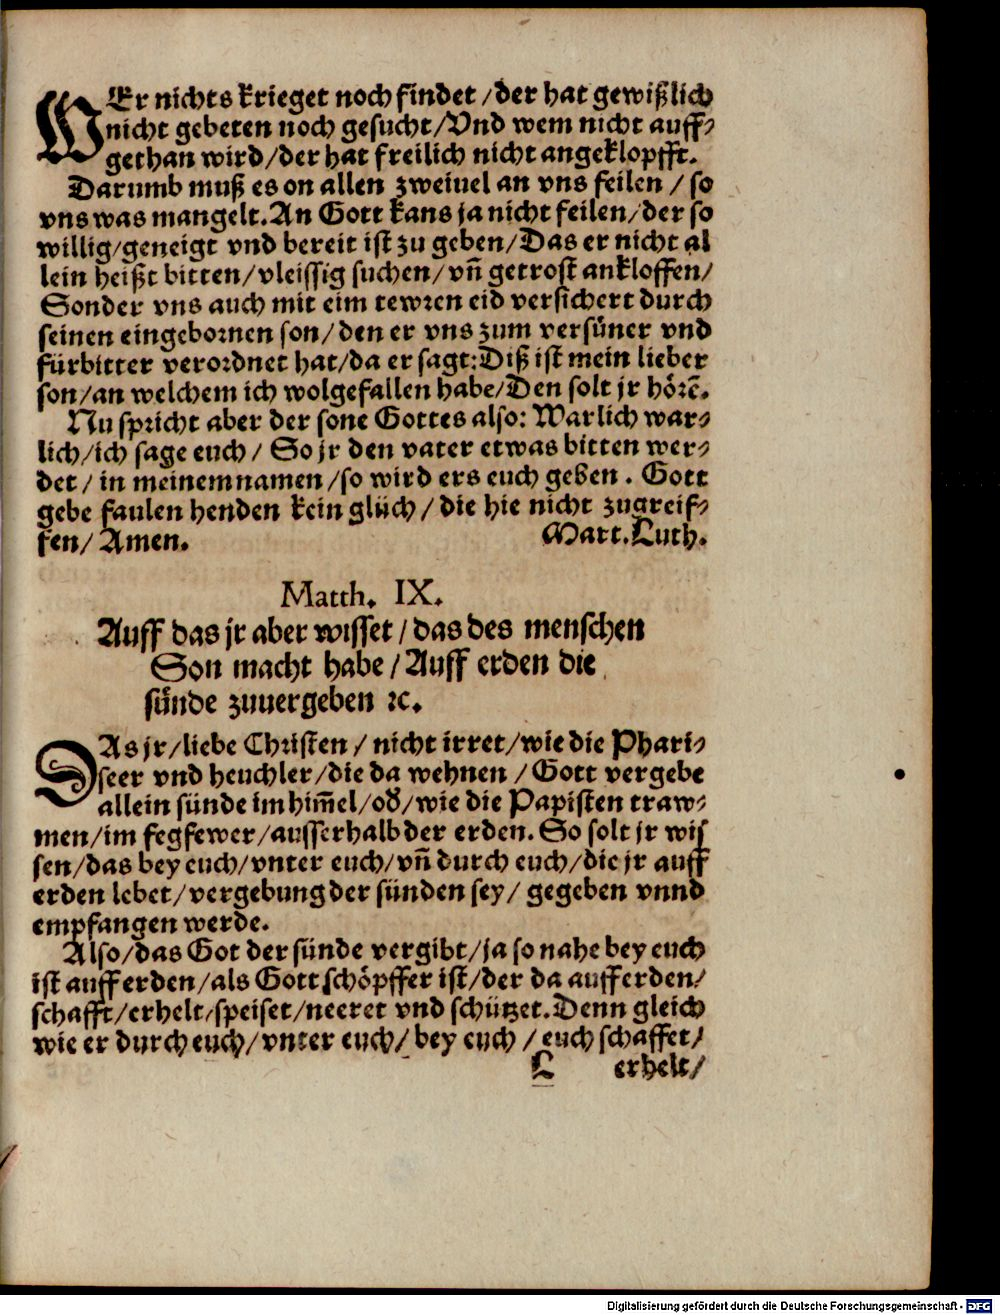 WEr nichts krieget noch findet/der hat gewißlich
nicht gebeten noch gesucht/Vnd wem nicht auff⸗
gethan wird/der hat freilich nicht angeklopfft.
Darumb muß es on allen zweiuel an vns feilen/so
vns was mangelt.An Gott kans ja nicht feilen/der so
willig/geneigt vnd bereit ist zu geben/Das er nicht al
lein heißt bitten/vleissig suchen/vñ getrost ankloffen/
Sonder vns auch mit eim tewren eid versichert durch
seinen eingebornen son/den er vns zum versüner vnd
fürbitter verordnet hat/da er sagt:Diß ist mein lieber
son/an welchem ich wolgefallen habe/Den solt jr hörẽ.
Nu spricht aber der sone Gottes also: Warlich war⸗
lich/ich sage euch/ So jr den vater etwas bitten wer⸗
det/in meinem namen/so wird ers euch geben. Gott
gebe faulen henden kein glück/die hie nicht zugreif⸗
fen/Amen. Mart.Luth.
Matth. IX.
Auff das jr aber wisset/das des menschen
Son macht habe/Auff erden die
sünde zuuergeben ꝛc.
DAs jr/liebe Christen/nicht irret/wie die Phari⸗
seer vnd heuchler/die da wehnen/Gott vergebe
allein sünde im him̃el/oď/wie die Papisten traw⸗
men/im fegfewer/ausserhalb der erden.So solt jr wis
sen/das bey euch/vnter euch/vñ durch euch/die jr auff
erden lebet/vergebung der sünden sey/gegeben vnnd
empfangen werde.
Also/das Got der sünde vergibt/ja so nahe bey euch
ist auff erden/als Gott schöpffer ist/der da auff erden/
schafft/erhelt/speiset/neeret vnd schützet.Denn gleich
wie er durch euch/vnter euch/bey euch/euch schaffet/
L erhelt/
Digitalisierung gefördert durch die Deutsche Forschungsgemeinschaft - DFG